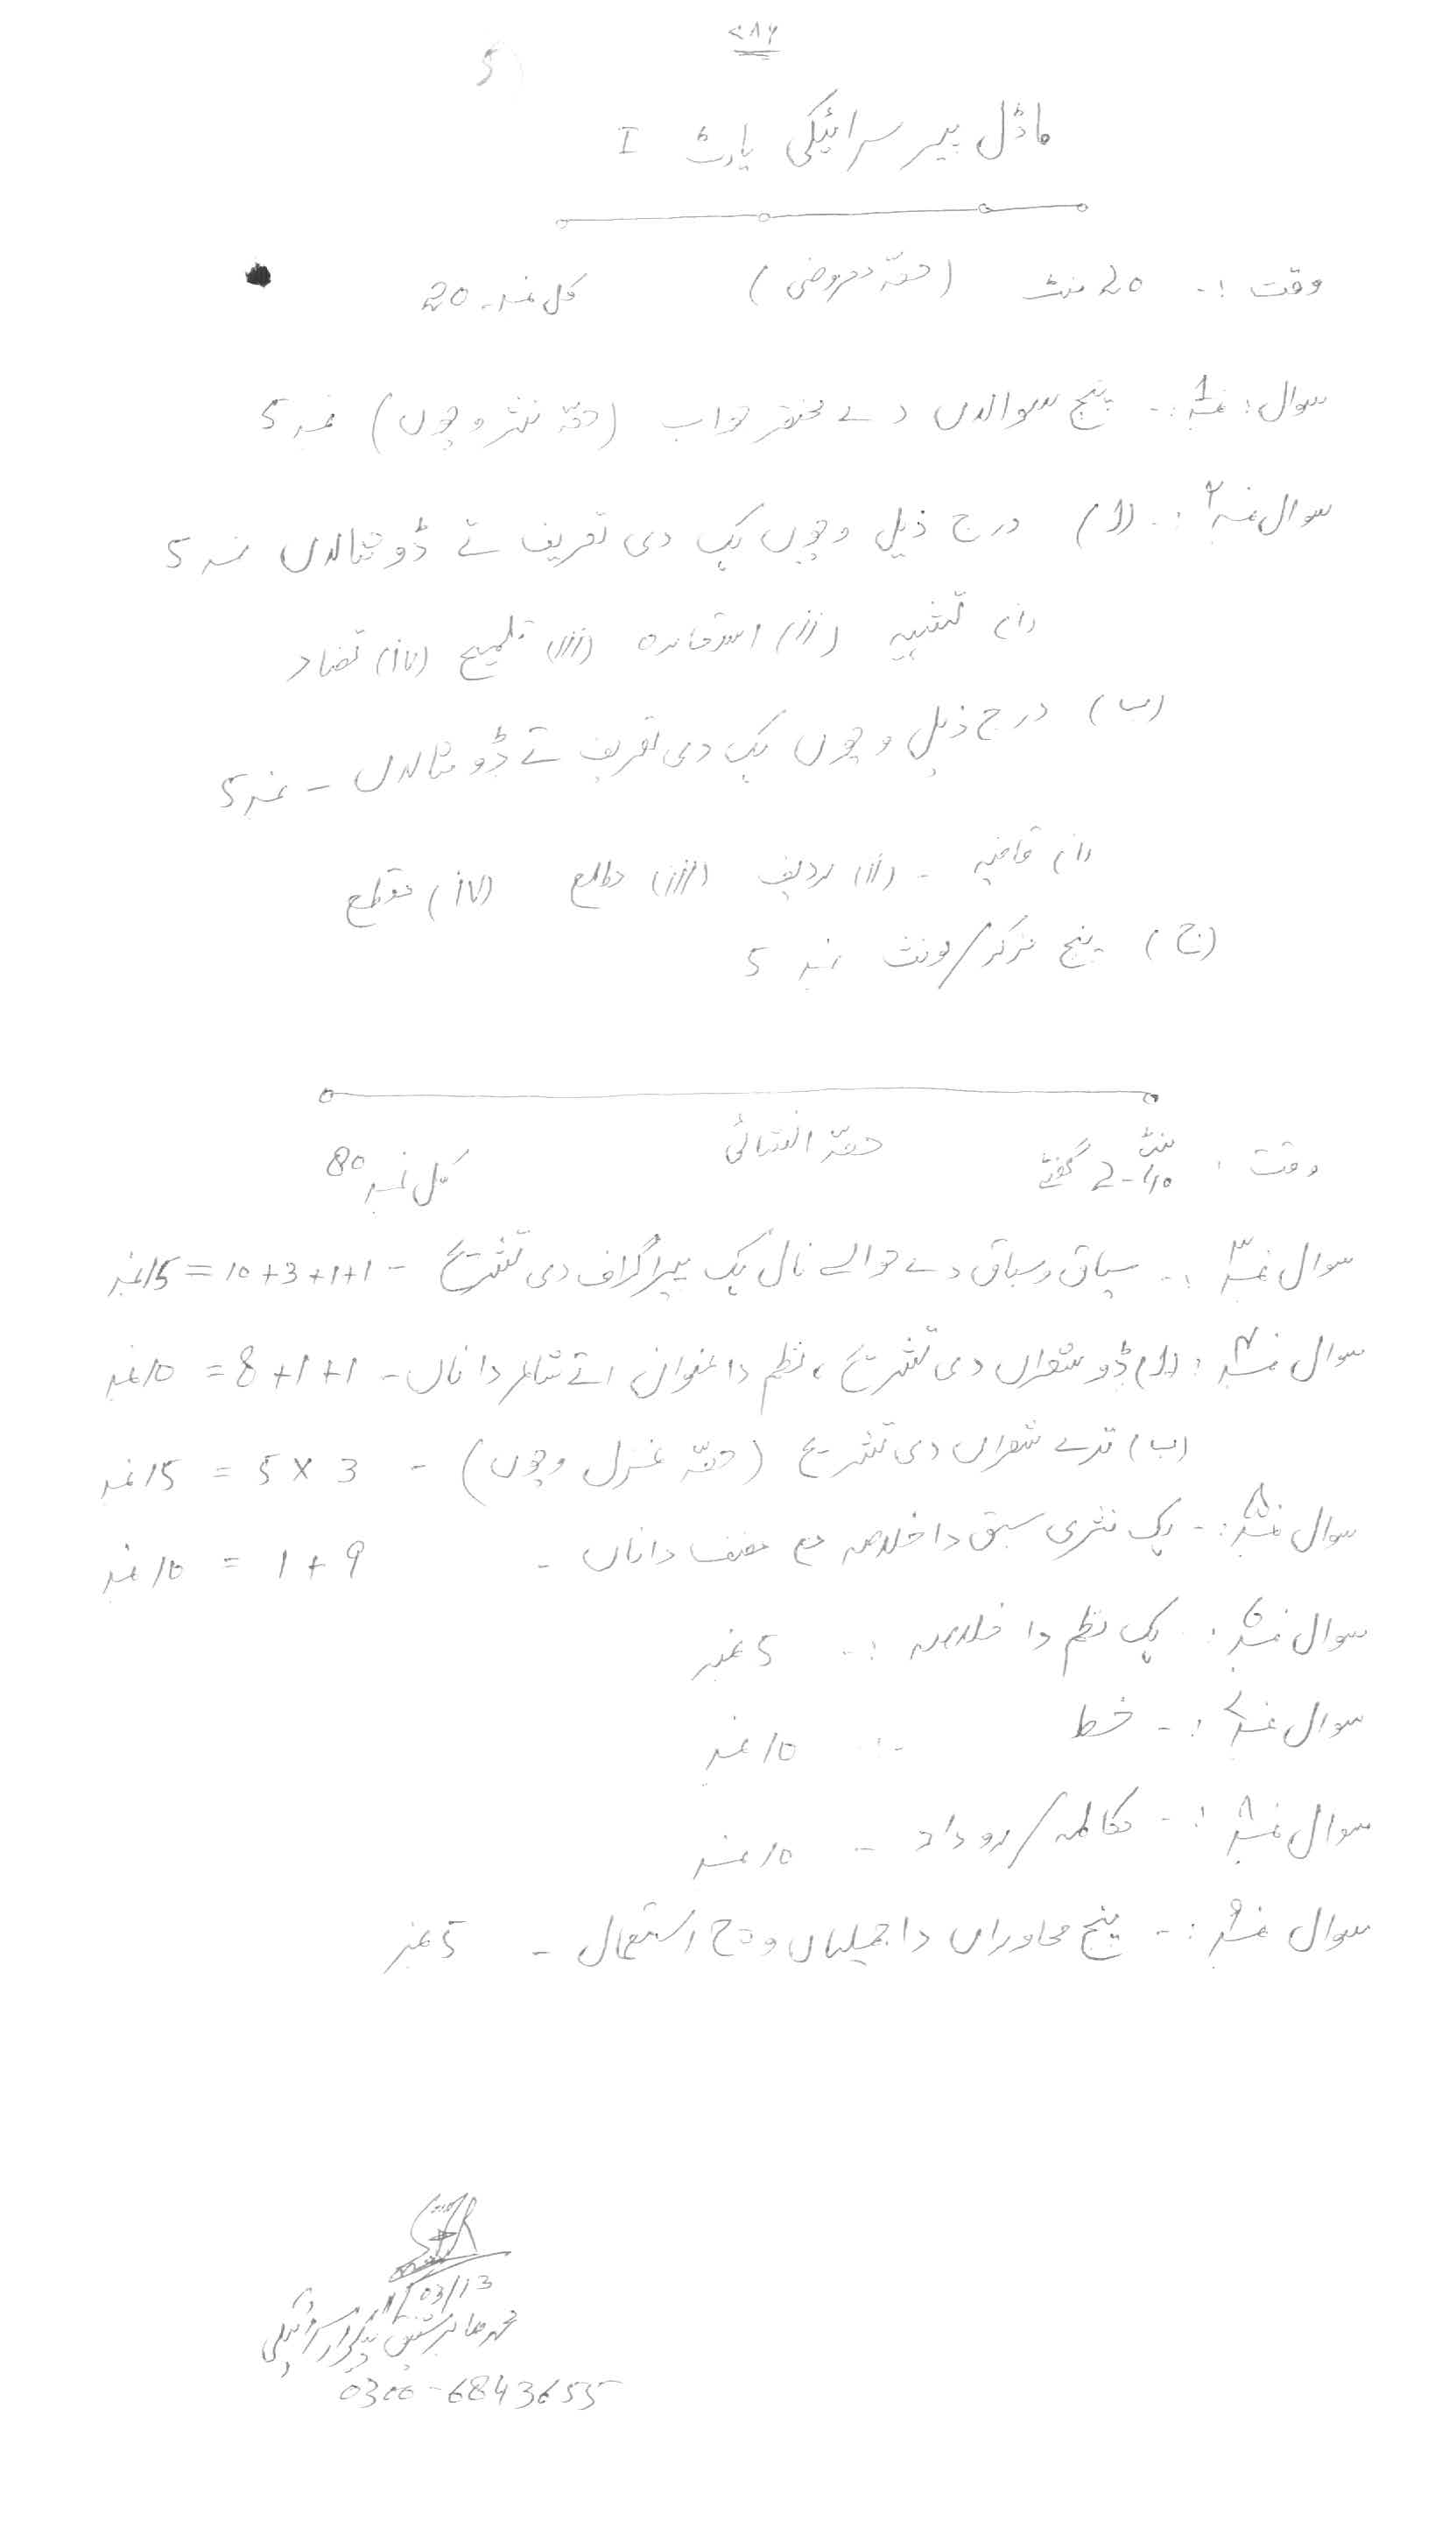 ۷۸۶
ماڈل پیپر سرائیکی پارٹ I
وقت :۔ 20 منٹ (حصّہ معروضی) کل نمبر۔ 20
سوال نمبر 1 :۔ پنج سوالاں دے مختصر جواب (حصّہ نثر وچوں) نمبر 5
سوال نمبر ۲ :۔ (ا) درج ذیل وچوں ہک دی تعریف تے ڈو مثالاں نمبر 5
(i) تشبیہ (ii) استعارہ (iii) تلمیح (iv) تضاد
(ب) درج ذیل وچوں ہک دی تعریف تے ڈو مثالاں ۔ نمبر 5
(i) قافیہ ۔ (ii) ردیف (iii) مطلع (iv) مقطع
(ج) پنج مذکر/مونث نمبر 5
وقت : 2-40 منٹ گھنٹے حصّہ انشائی کل نمبر 80
سوال نمبر ۳ :۔ سیاق و سباق دے حوالے نال ہک پیراگراف دی تشریح ۔ 1+1+3+10 = 15 نمبر
سوال نمبر ۴ : (ا) ڈو شعراں دی تشریح ، نظم دا عنوان اتے شاعر دا ناں ۔ 1+1+8 = 10 نمبر
(ب) ترے شعراں دی تشریح (حصّہ غزل وچوں) ۔ 3 × 5 = 15 نمبر
سوال نمبر ۵ :۔ ہک نثری سبق دا خلاصہ مع مصنف دا ناں ۔ 9 + 1 = 10 نمبر
سوال نمبر ۶ :۔ ہک نظم دا خلاصہ :۔ 5 نمبر
سوال نمبر ۷ :۔ خط :۔ 10 نمبر
سوال نمبر ۸ :۔ مکالمہ/روداد ۔ 10 نمبر
سوال نمبر ۹ :۔ پنج محاوراں دا جملیاں وچ استعمال ۔ 5 نمبر
03/13
محمد صابر لیکچرار سرائیکی
0300-6843655